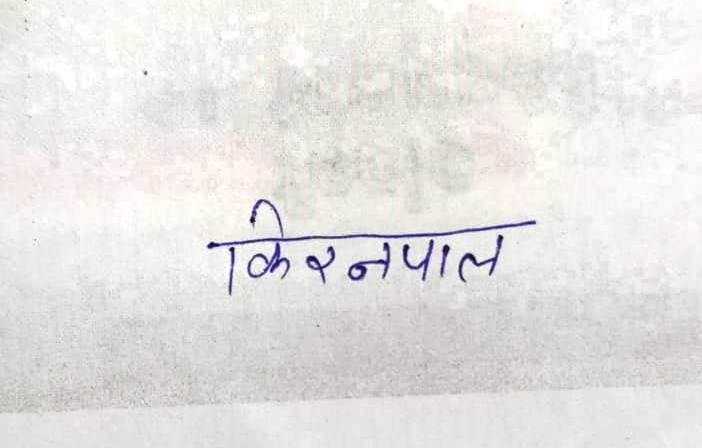 किरनपाल